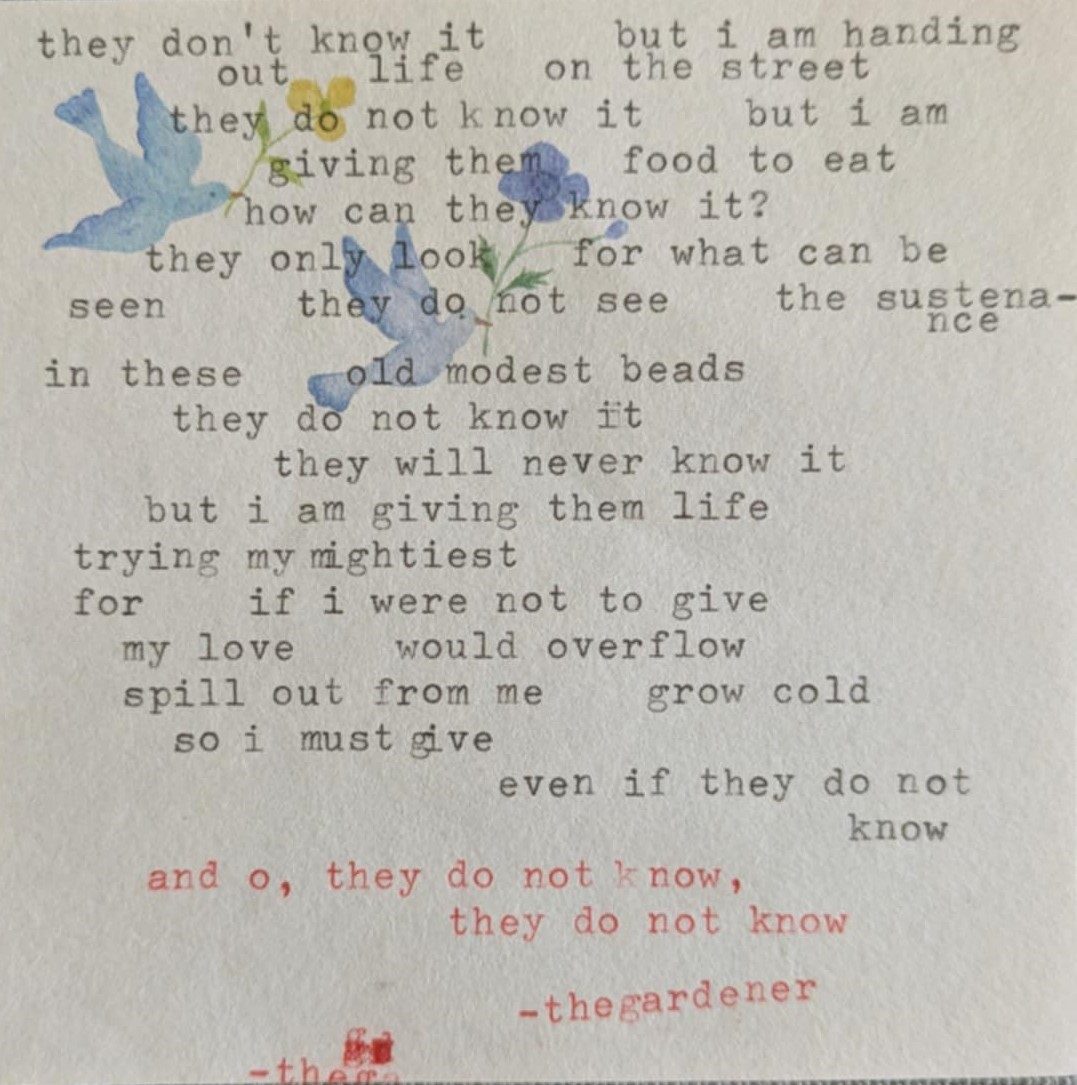 they don't know it but i am handing
out life on the street
they do not know it but i am
giving them food to eat
how can they know it?
they only look for what can be
seen they do not see the sustena-
nce
in these old modest beads
they do not know it
they will never know it
but i am giving them life
trying my mightiest
for if i were not to give
my love would overflow
spill out from me grow cold
so i must give
even if they do not
know
and o, they do not know,
they do not know
-thegardener